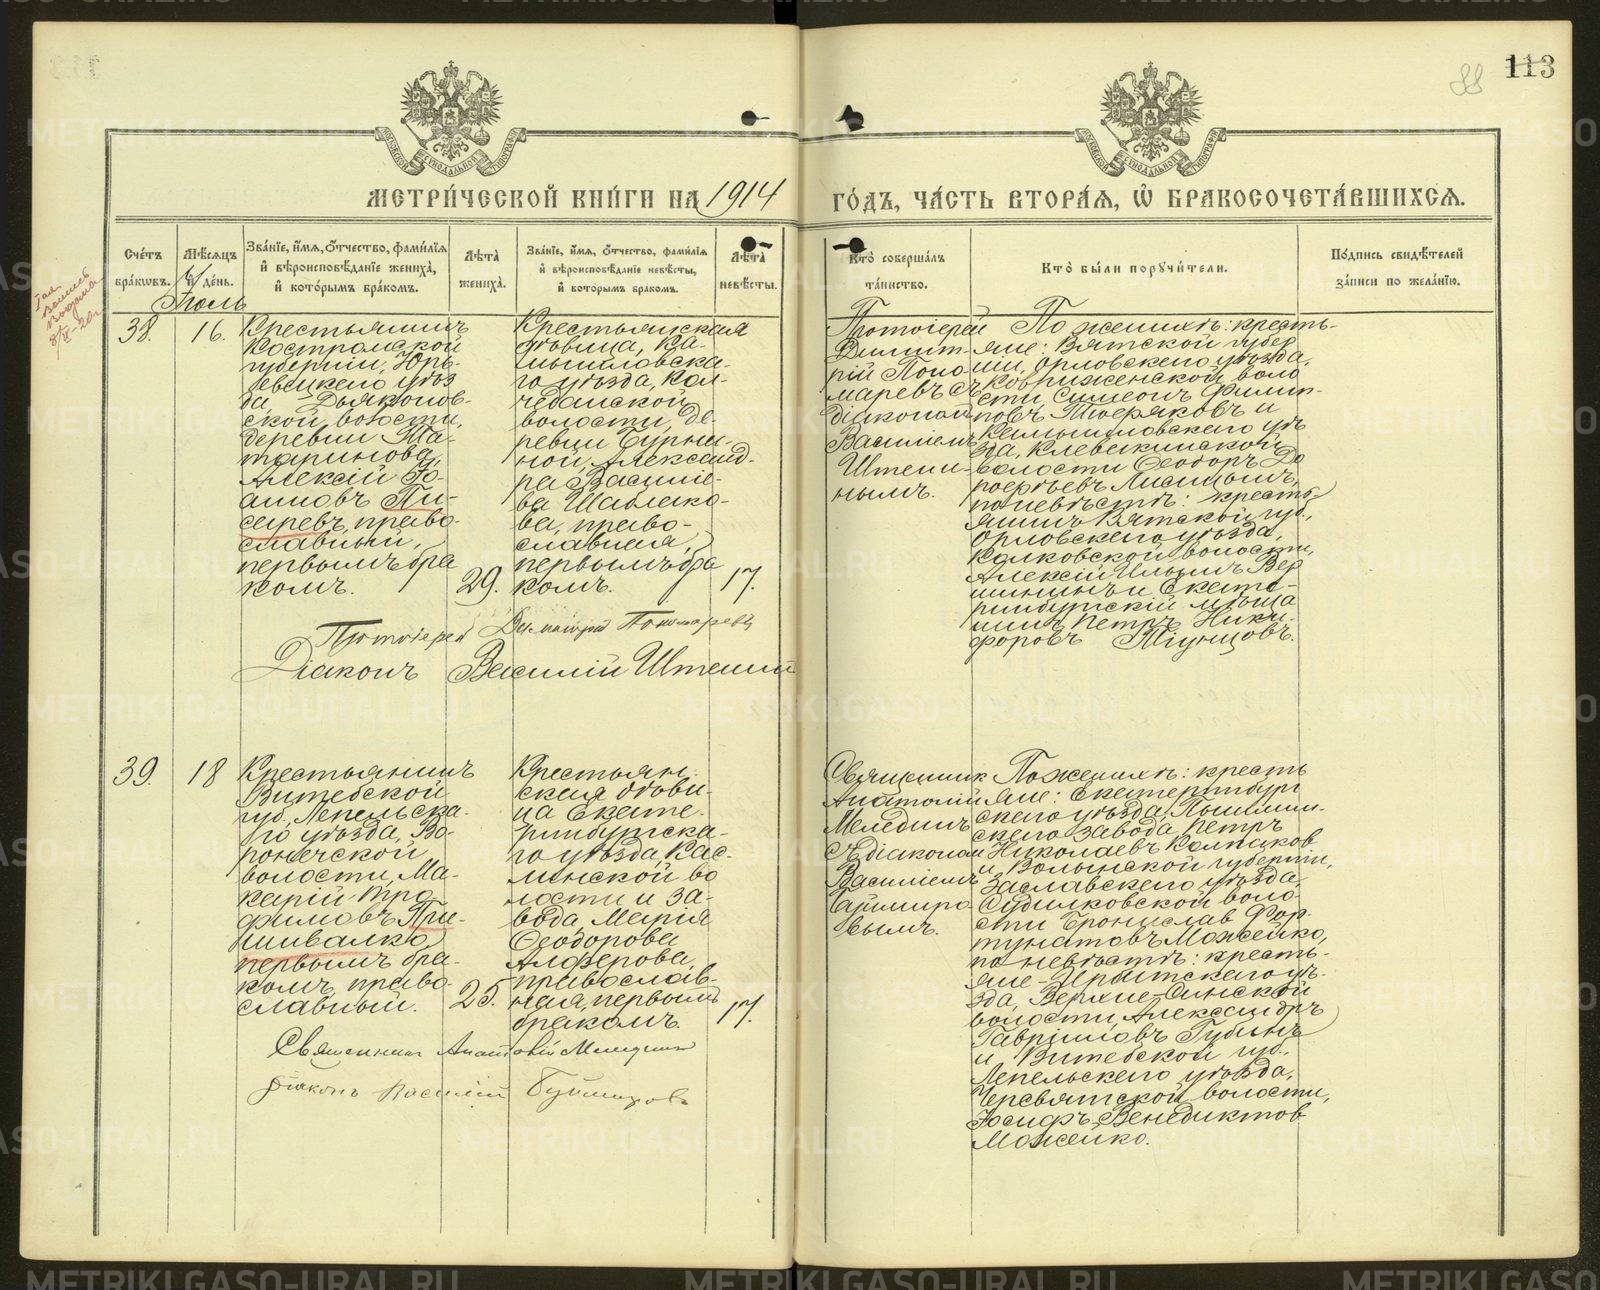 113
88
МЕТРИ́ЧЕСКОЙ КНИ́ГИ НА 1914 ГО́ДЪ, ЧА́СТЬ ВТОРА́Я, Ѡ БРАКОСОЧЕТА́ВШИХСЯ.
Сче́тъ бра́ковъ.
Мѣ́сяцъ и де́нь.
Зва́нїе, и́мя, ѻ́тчество, фами́лїя и вѣроисповѣ́данїе жениха̀, и кото́рымъ бра́комъ.
Лѣ́та жениха̀.
Зва́нїе, и́мя, ѻ́тчество, фами́лїя и вѣроисповѣ́данїе невѣ́сты, и кото́рымъ бракомъ.
Лѣ́та невѣ́сты.
Кто̀ соверша́лъ та́инство.
Кто̀ бы́ли порꙋчи́тели.
По́дпись свидѣ́телей за́писи по жела́нїю.
Іюль
38.
16.
Крестьянинъ
Костромской
губерніи, Юрь-
евецкого уѣз
да, Дьяконов-
ской волости,
деревни Та-
таринова,
Алексій Іо-
анновъ Пи-
саревъ, право-
славный,
первымъ бра
комъ.
29.
Крестьянская
дѣвица, Ка-
мышловска-
го уѣзда, Кол-
чеданской
волости, де-
ревни Бурни-
ной, Александ-
ра Василіе-
ва Шаблако-
ва, право-
славная,
первымъ бра
комъ.
17.
Протоіерей
Димит-
рій Поно
маревъ съ
діакономъ
Василіемъ
Штени-
нымъ.
По женихѣ: кресть-
яне: Вятской губер
ніи, Орловского уѣзда,
Ковриженской воло
сти Симеонъ Филип-
повъ Тюеряковъ и
Камышловского уѣ
зда, Клевакинской
волости Ѳеодоръ До
роѳѣевъ Лисицынъ,
по невѣстѣ: кресть
янинъ Вятской губ.,
Орловского уѣзда,
Колковской волости,
Алексій Ильинъ Вер
шининъ и Екате-
ринбургскій мѣща
нинъ Петръ Ники-
форовъ Тіунцовъ.
Протоіерей Димитрій Пономаревъ
Діаконъ Василій Штенин
39.
18
Крестьянинъ
Витебской
губ., Лепельска-
го уѣзда, Во-
ронечской
волости, Ма-
карій Тро
фимовъ При-
шивалко,
первымъ бра-
комъ, право-
славный.
25.
Крестьян-
ская дѣви-
ца Екате-
ринбургска-
го уѣзда, Кас-
линской во
лости и за-
вода, Марія
Ѳеодорова
Алферова,
православ-
ная, первымъ
бракомъ.
17.
Священник
Анатолій
Мелединъ
съ діакономъ
Василіемъ
Баймиро-
вымъ.
По женихѣ: кресть
яне: Екатеринбург
ского уѣзда, Пышмин-
ского завода Петръ
Николаевъ Колпаков
и Волынской губерніи,
Заславского уѣзда,
Судилковской воло-
сти Брониславъ Фор-
тунатовъ Можейко,
по невѣстѣ: кресть-
яне - Ирбитского уѣ-
зда, Верхне-
волости, Александръ
Гавріиловъ Губинъ
и Витебской губ.,
Лепельского уѣзда,
Черсвятской волости,
Іосифъ Венедиктов
Можейко.
Священник Анатолій Меледин
Діаконъ Василій Баймировъ